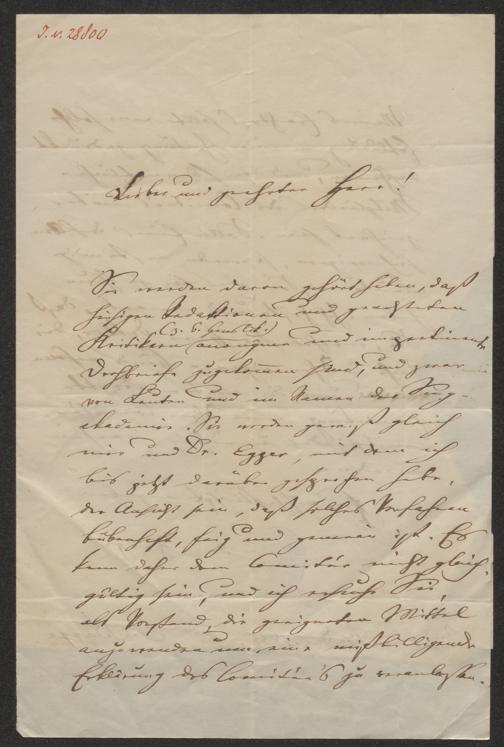 I.N. 28800
Lieber und geehrter Herr!
Sie werden davon gehört haben, daß
hiesigen Redaktionen und geachteten
(z. B.
Kritikern anonyme und impertinente
Drohbriefe zugekommen sind, und zwar
von Leuten und im Namen der Sing-
akademie. Sie werden gewiß gleich
mir und Dr. Egger, mit dem ich
bis jetzt darüber gesprochen habe,
der Ansicht sein, daß solches Verfahren
bübenhaft, feig und gemein ist. Es
kann daher dem Comité nicht gleich-
gültig sein, und ich ersuche Sie,
als Vorstand, die geeigneten Mittel
anzuwenden um eine mißbilligende
Erklärung des Comité's zu veranlassen.